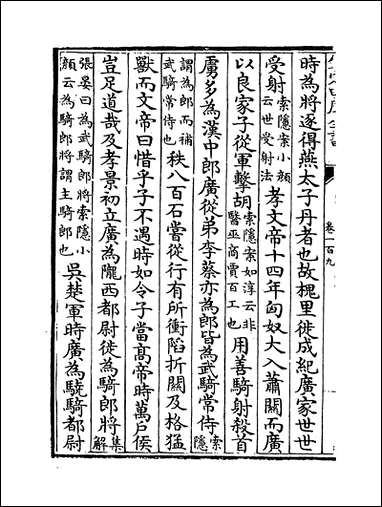 卷一百九
時為將逐得燕太子丹者也故槐里徙成紀廣家世世
受射索隱案小顔云世受射法孝文帝十四年匈奴大入蕭關而廣
以良家子從軍擊胡索隱案如淳云非醫巫商賈百工也用善騎射殺首
虜多為漢中郎廣從弟李蔡亦為郎皆為武騎常侍索隱
謂為郎而補武騎常侍也秩八百石嘗從行有所衝陷折關及格猛
獸而文帝曰惜乎子不遇時如令子當髙帝時萬戶侯
豈足道哉及孝景初立廣為隴西都尉徙為騎郎將集解
張晏曰為武騎郎將索隱小顔云為騎郎將謂主騎郎也吳楚軍時廣為驍騎都尉